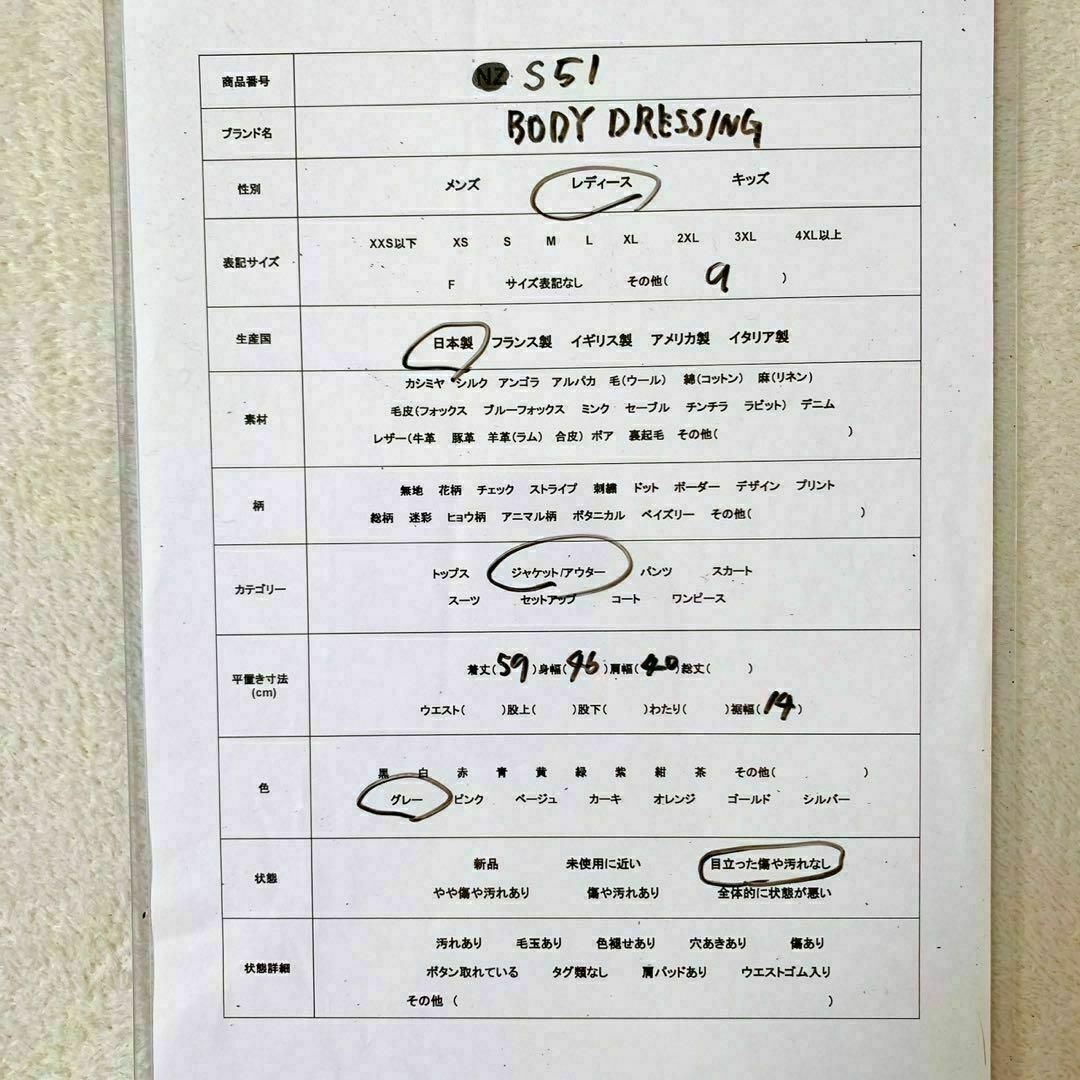 商品番号 NZ S51
ブランド名 BODY DRESSING
性別 メンズ レディース キッズ
XXS以下 XS S M L XL 2XL 3XL 4XL以上
表記サイズ
F サイズ表記なし その他( 9 )
生産国 日本製 フランス製 イギリス製 アメリカ製 イタリア製
カシミヤ シルク アンゴラ アルパカ 毛(ウール) 綿(コットン) 麻(リネン)
素材 毛皮(フォックス ブルーフォックス ミンク セーブル チンチラ ラビット) デニム
レザー(牛革 豚革 羊革(ラム) 合皮) ボア 裏起毛 その他( )
無地 花柄 チェック ストライプ 刺繍 ドット ボーダー デザイン プリント
柄
総柄 迷彩 ヒョウ柄 アニマル柄 ボタニカル ペイズリー その他( )
トップス ジャケット/アウター パンツ スカート
カテゴリー
スーツ セットアップ コート ワンピース
着丈(59)身幅(46)肩幅(40)総丈( )
平置き寸法
(cm)
ウエスト( )股上( )股下( )わたり( )裾幅(14)
黒 白 赤 青 黄 緑 紫 紺 茶 その他( )
色
グレー ピンク ベージュ カーキ オレンジ ゴールド シルバー
新品 未使用に近い 目立った傷や汚れなし
状態
やや傷や汚れあり 傷や汚れあり 全体的に状態が悪い
汚れあり 毛玉あり 色褪せあり 穴あきあり 傷あり
状態詳細 ボタン取れている タグ類なし 肩パッドあり ウエストゴム入り
その他 ( )